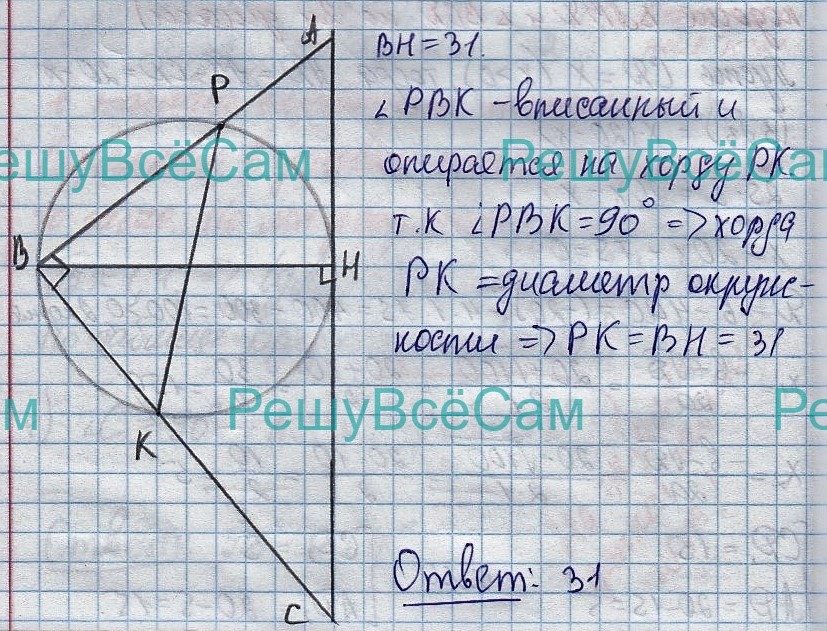 A
P
B
H
K
C
BH = 31.
∠ PBK - вписанный и
опирается на хорду PK
т.к ∠PBK = 90° => хорда
PK = диаметр окруж-
ности => PK = BH = 31
Ответ: 31
РешуВсёСам
РешуВсёСам
РешуВсёСам